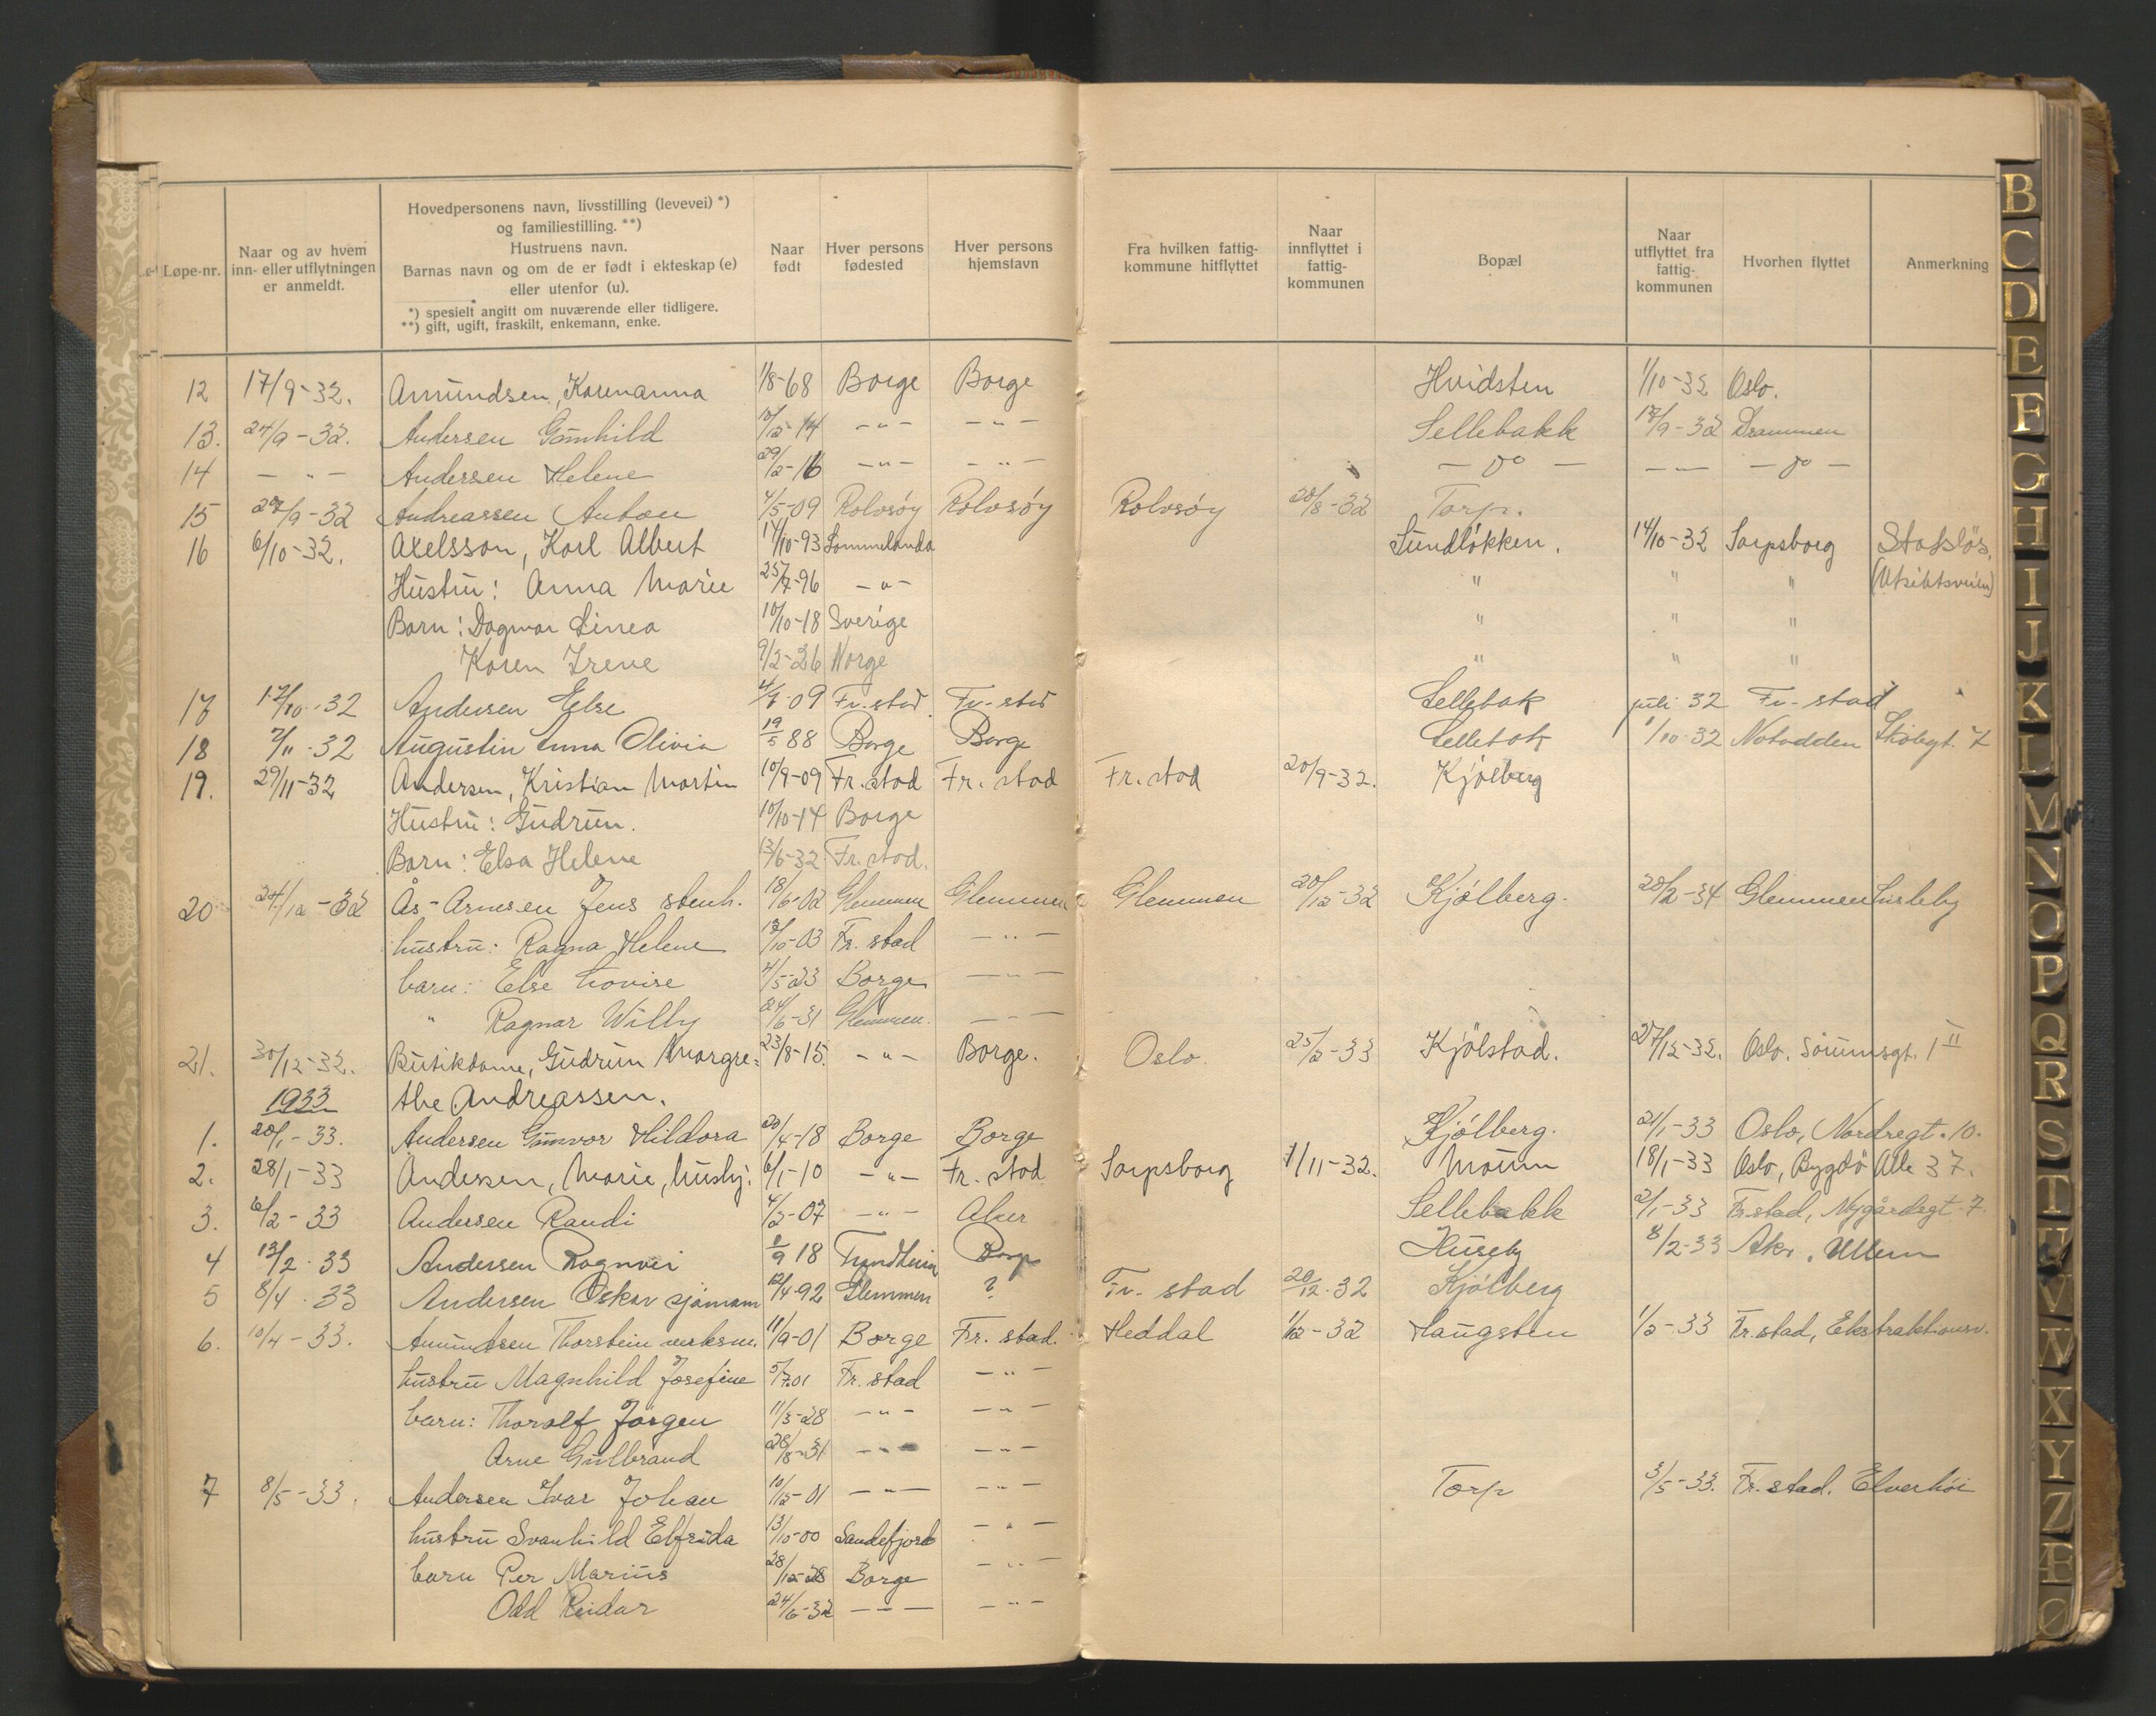 Løpe-nr. | Naar og av hvem inn- eller utflytningen er anmeldt. | Hovedpersonens navn, livsstilling (levevei) *) og familiestilling. **) Hustruens navn. Barnas navn og om de er født i ekteskap (e) eller utenfor (u). *) spesielt angitt om nuværende eller tidligere. **) gift, ugift, fraskilt, enkemann, enke. | Naar født | Hver persons fødested | Hver persons hjemstavn | Fra hvilken fattigkommune hitflyttet | Naar innflyttet i fattigkommunen | Bopæl | Naar utflyttet fra fattigkommunen | Hvorhen flyttet | Anmerkning
12 17/9-32. Amundsen, Karenanna 1/8-68 Borge Borge Hvidsten 1/10-32 Oslo.
13. 24/9-32. Andersen Gunhild 10/12-14 -"- -"- Sellebakk 17/9-32 Drammen
14 -"- Andersen Helene 29/2-16 -"- -"- -do- -"- -do-
15 27/9-32 Andreassen Anton 4/5-09 Rolvsøy Rolvsøy Rolvsøy 20/8-32 Torp.
16 6/10-32. Axelsson, Karl Albert 17/10-93 Sommelanda Sundløkken. 14/10-32 Sarpsborg Statsløs.
Hustru: Anna Marie 25/7-96 -"- " " "
Barn: Dagmar Linea 10/10-18 Sverige " " "
Karen Irene 9/2-26 Norge " " "
17 17/10-32 Andersen Else 4/7-09 Fr.stad Fr-stad Sellebak juli 32 Fr-stad
18 7/11-32 Augustin Anna Olivia 19/5 88 Borge Borge Sellebak 1/10-32 Notodden 7
19. 29/11-32 Andersen, Kristian Martin 10/9-09 Fr.stad Fr. stad Fr. stad 20/9-32. Kjølberg
Hustru: Gudrun. 10/10-14 Borge
Barn: Elsa Helene 13/6-32 Fr.stad.
20 24/12-32 Ås-Arnesen Jens stenh. 18/6-02 Glemmen Glemmen Glemmen 20/12-32 Kjølberg. 20/2-34 Glemmen Lisleby
hustru: Ragna Helene 17/10-03 Fr. stad -"-
barn: Else Lovise 4/5-23 Borge -"-
" Ragnar Willy 24/6-31 Glemmen. -"-
21. 30/12-32. Butikdame, Gudrun Margre= 23/8-15. -"- Borge. Oslo. 25/2-33 Kjølstad. 27/12-32. Oslo. Sørumsgt. 1 II
1933 the Andreassen.
1. 20/1-33. Andersen Gunvor Hildora 20/4-18 Borge Borge Kjølberg. 21/1-33 Oslo, Nordregt. 10.
2. 28/1-33 Andersen, Marie, hushj. 6/1-10 -"- Fr. stad Sarpsborg 1/11-32. Moum 18/1-33 Oslo, Bygdö Alle 37.
3. 6/2-33 Andersen Randi 4/2-07 -"- Aker Sellebakk 2/1-33 Fr.stad, Nygårdsgt. 7.
4 13/2-33 Andersen Ragnvei 9 18 Trondheim Borge Huseby 8/2-33 Akr. Ullern
5 8/4-33 Andersen Oskar sjømann 12/4-92 Glemmen ? Fr. stad 20/12-32 Kjølberg
6. 10/4-33. Amundsen Thorstein verksm. 11/9-01 Borge Fr. stad. Heddal 1/12-32 Haugsten 1/2-33 Fr.stad, Ekstraktionsv.
hustru Magnhild Josefine 5/7-01 Fr. stad -"-
barn: Thoralf Jørgen 11/3-28 -"- -"-
Arne Gulbrand 28/8-31 -"- -"-
7 8/5-33. Andersen Ivar Johan 10/12-01 -"- -"- Torp 3/5-33. Fr.stad. Elverhöi
hustru Svanhild Elfrida 13/10-00 Sandefjord -"-
barn Per Marius 28/12-28 Borge -"-
Odd Reidar 24/6-32 -"- -"-
B
C
D
E
F
G
H
I
J
K
L
M
N
O
P
Q
R
S
T
U
V
W
X
Y
Z
Æ
Ø